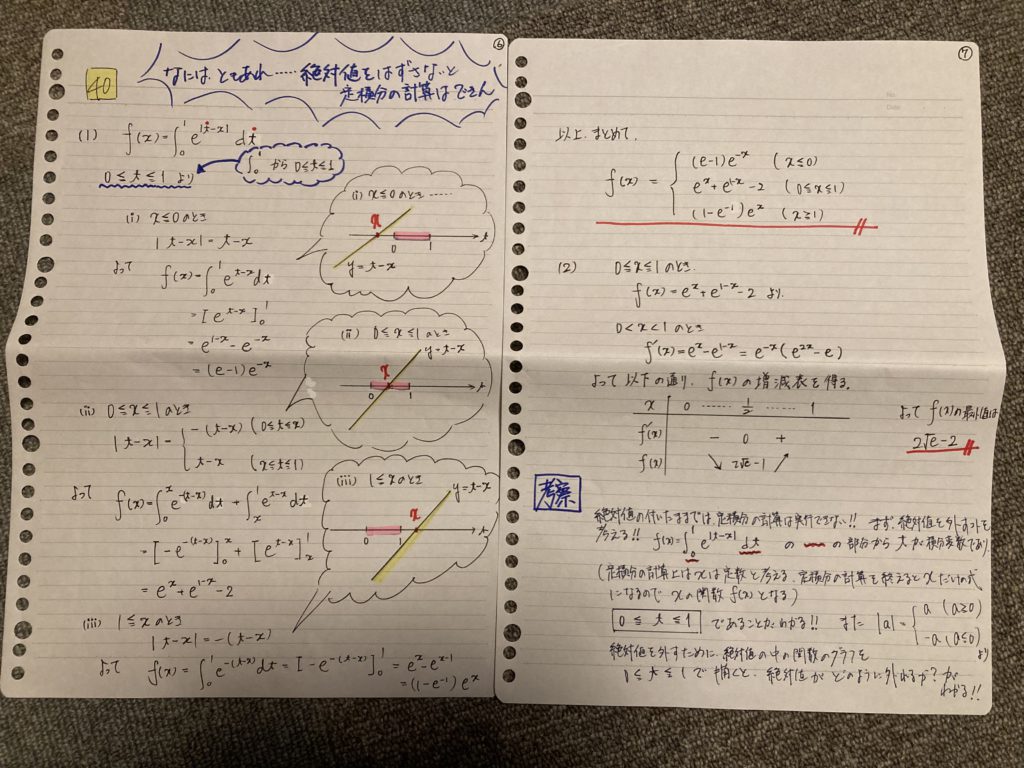 ⑥
40
なにはともあれ……絶対値をはずさないと
定積分の計算はできん
(1) f(x)=∫₀¹ e^{|t-x|} dt
∫₀¹ から 0≦t≦1
0≦t≦1 より
(i) x≦0のとき
|t-x|=t-x
よって f(x)=∫₀¹ e^{t-x}dt
=[e^{t-x}]₀¹
=e^{1-x}-e^{-x}
=(e-1)e^{-x}
(i) x≦0のとき……
x
0 1 t
y=t-x
(ii) 0≦x≦1のとき
|t-x|={-(t-x) (0≦t≦x)
t-x (x≦t≦1)
よって f(x)=∫₀ˣ e^{-(t-x)}dt+∫ₓ¹ e^{t-x}dt
=[-e^{-(t-x)}]₀ˣ+[e^{t-x}]ₓ¹
=eˣ+e^{1-x}-2
(ii) 0≦x≦1のとき
y=t-x
x
0 1 t
(iii) 1≦xのとき
|t-x|=-(t-x)
よって f(x)=∫₀¹ e^{-(t-x)}dt=[-e^{-(t-x)}]₀¹=eˣ-e^{x-1}
=(1-e^{-1})eˣ
(iii) 1≦xのとき
y=t-x
x
0 1 t
⑦
No.
Date
以上まとめて.
f(x)={(e-1)e^{-x} (x≦0)
eˣ+e^{1-x}-2 (0≦x≦1)
(1-e^{-1})eˣ (x≧1)
(2) 0≦x≦1のとき.
f(x)=eˣ+e^{1-x}-2 より.
0<x<1のとき
f'(x)=eˣ-e^{1-x}=e^{-x}(e^{2x}-e)
よって以下の通り、f(x)の増減表を得る.
x 0 …… 1/2 …… 1
f'(x) - 0 +
f(x) ↘ 2√e-1 ↗
よってf(x)の最小値は
2√e-2
考察
絶対値の付いたままでは、定積分の計算は実行できない!! まず、絶対値を外すことを
考える!! f(x)=∫₀¹ e^{|t-x|} dt の の部分から tが積分変数であり
(定積分の計算上はxは定数と考える. 定積分の計算を終えるとxだけの式
になるので xの関数f(x)となる)
0≦t≦1 であることがわかる!! また |a|={a (a≧0)
-a (a≦0) より
絶対値を外すために、絶対値の中の関数のグラフを
0≦t≦1で描くと、絶対値がどのように外れるか?が
わかる!!